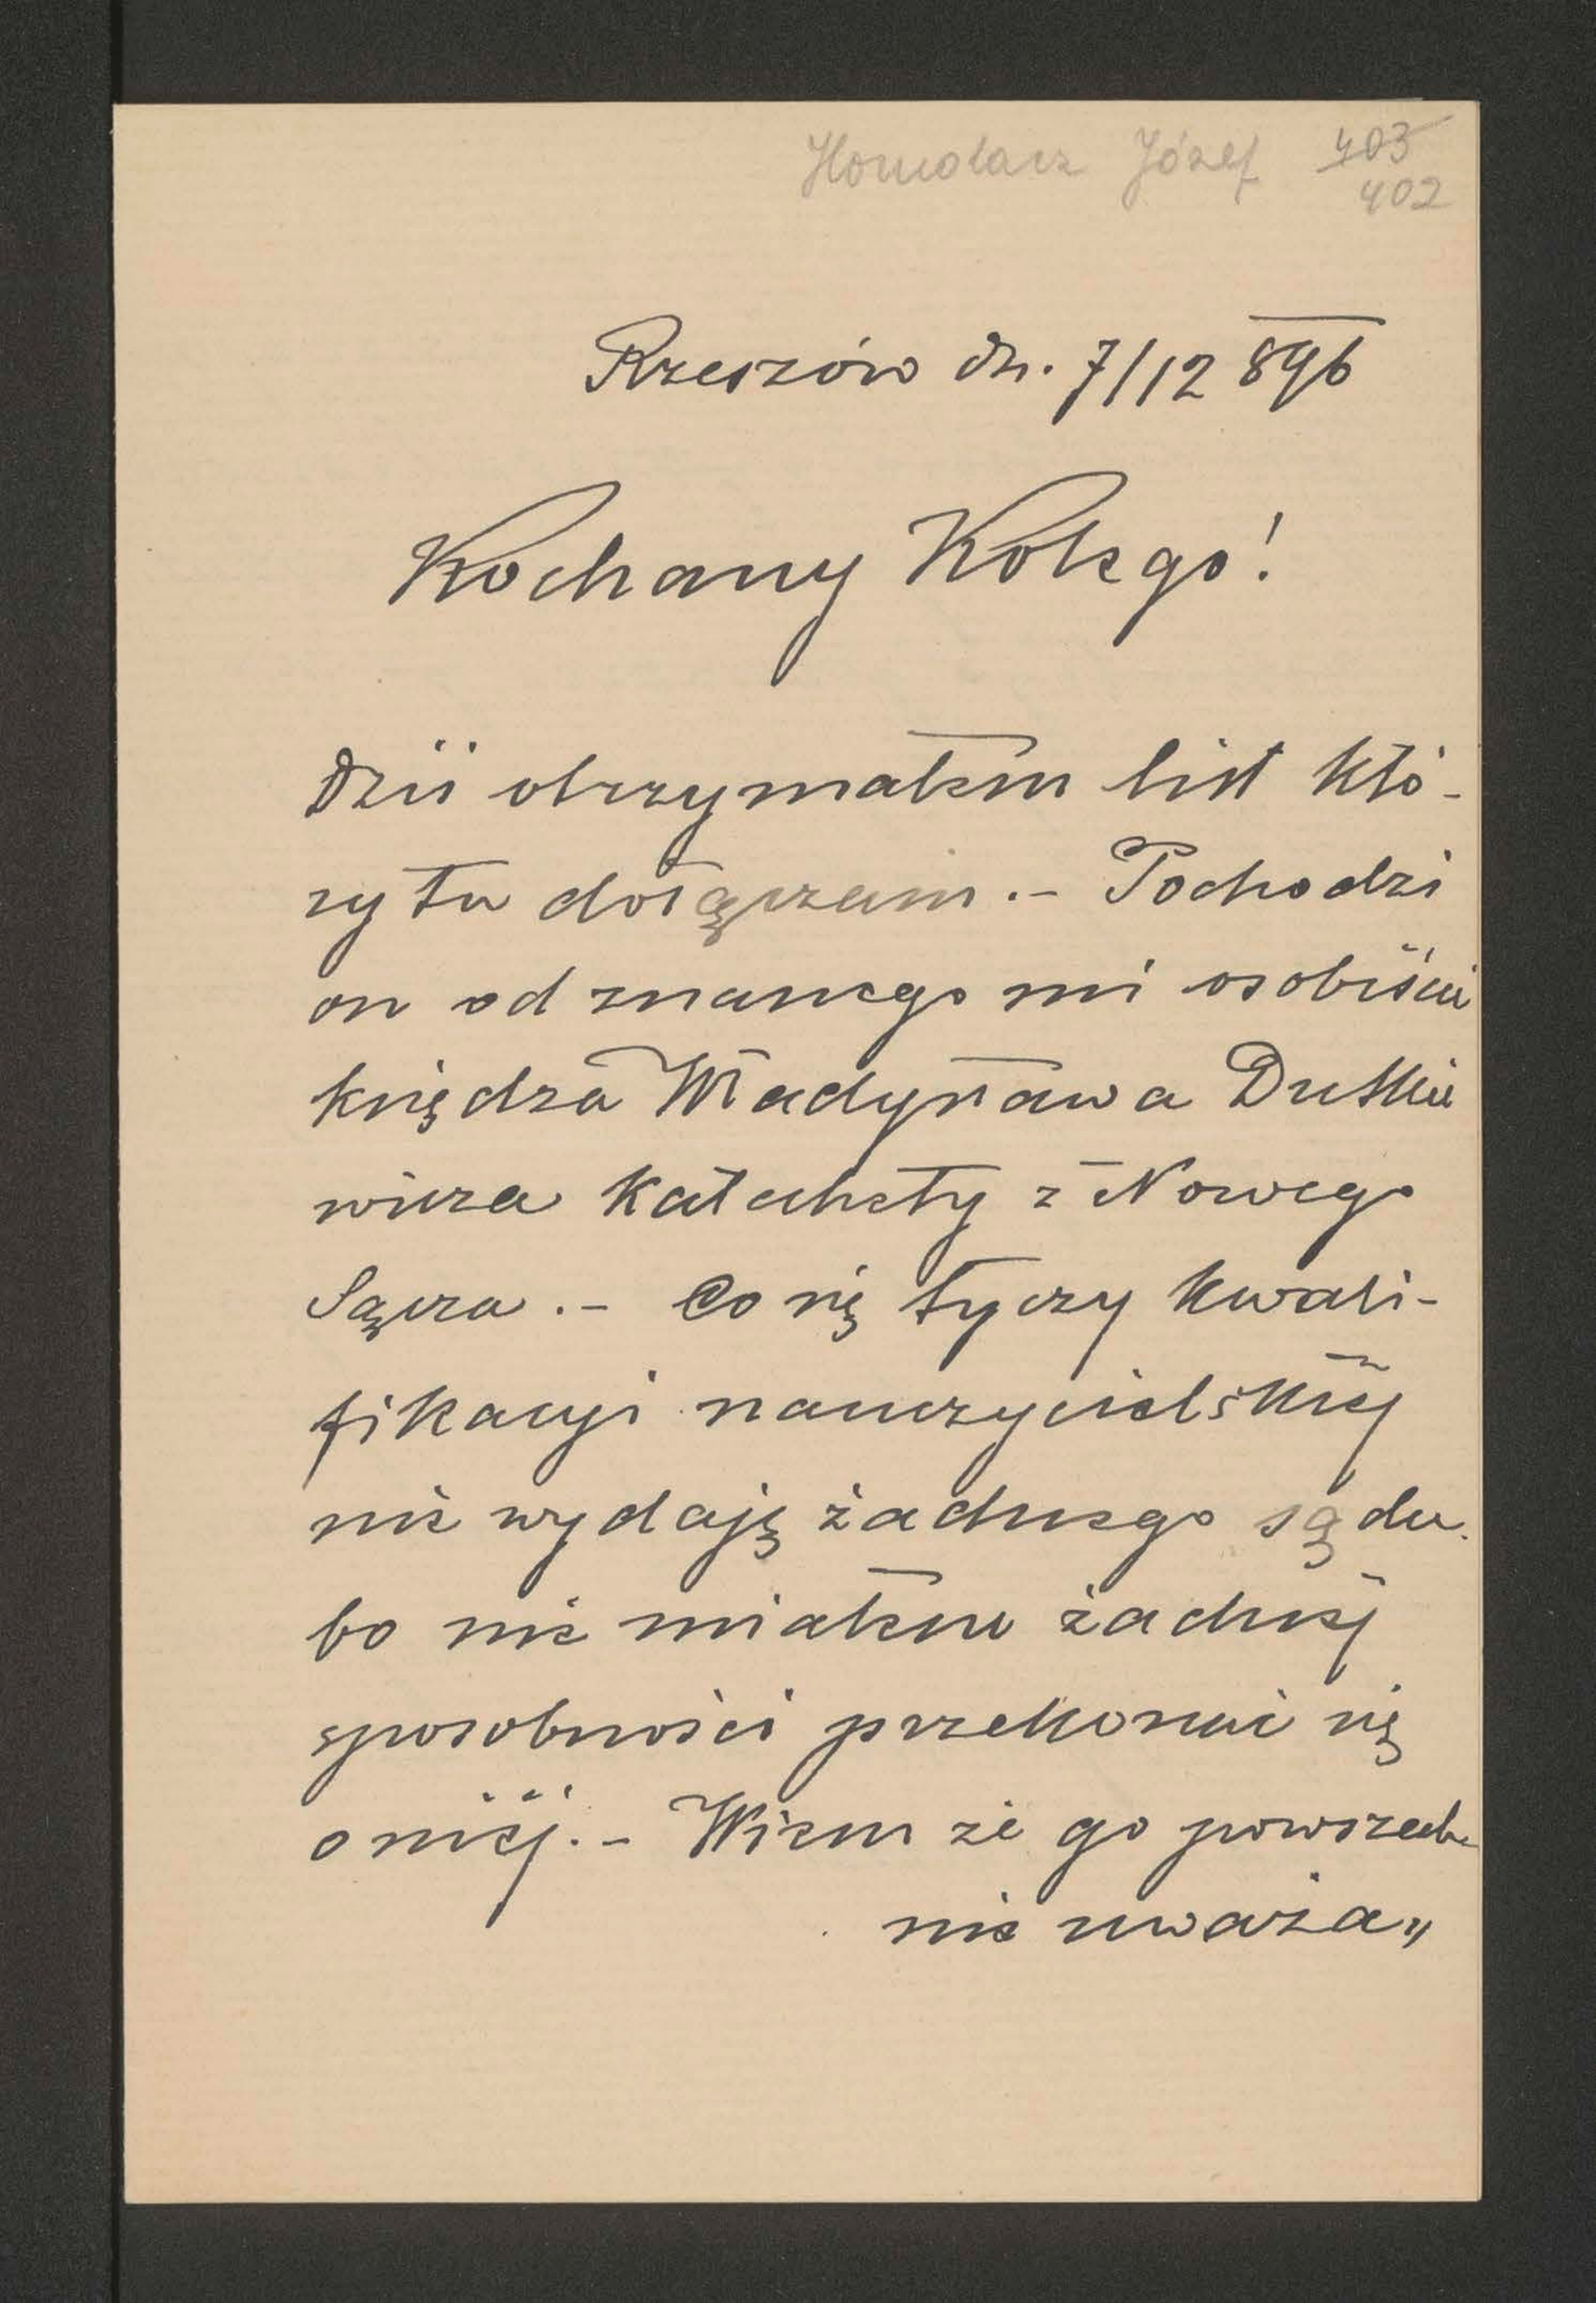 Homolacz Józef 403
402
Rzeszów dn. 7/12 896
Kochany Kolego!
Dziś otrzymałem list któ-
ry tu dołączam.- Pochodzi
on od znanego mi osobiście
księdza Władysława Dutkie
wicza Katechety z Nowego
Sącza.- Co się tyczy kwali-
fikacyi nauczycielskiéj
nie wydaję żadnego sądu
bo nie miałem żadnéj
sposobności przekonać się
o niéj.- Wiem że go powszech
nie uważa„